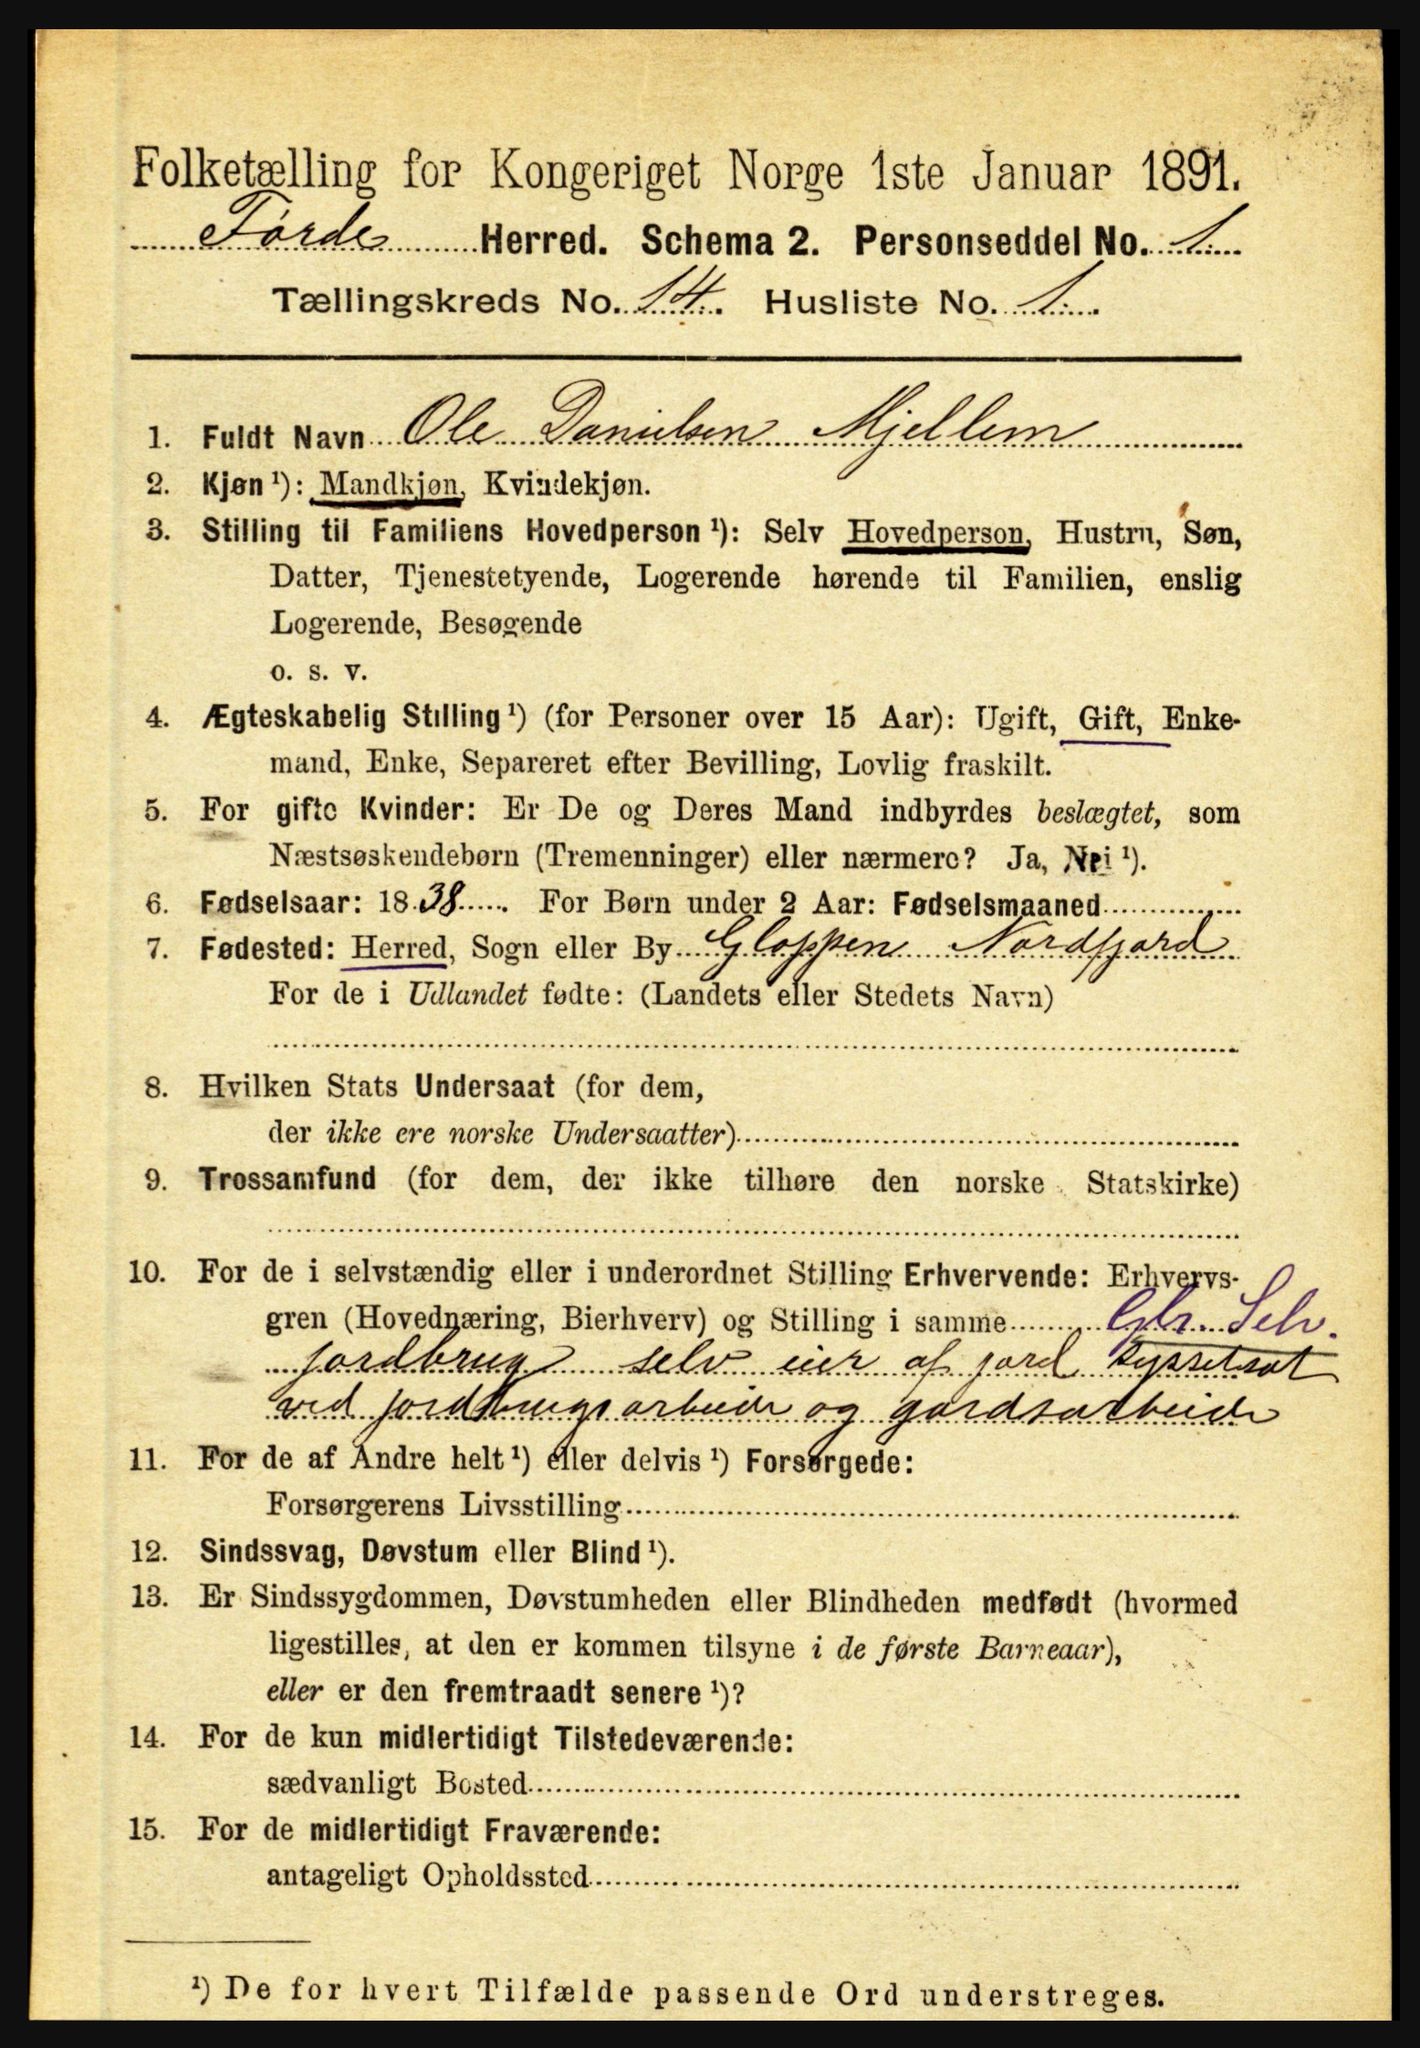 Folketælling for Kongeriget Norge 1ste Januar 1891.
Førde Herred. Schema 2. Personseddel No. 1.
Tællingskreds No. 14. Husliste No. 1.
1. Fuldt Navn Ole Danielsen Mjellem
2. Kjøn ¹): Mandkjøn, Kvindekjøn.
3. Stilling til Familiens Hovedperson ¹): Selv Hovedperson, Hustru, Søn,
Datter, Tjenestetyende, Logerende hørende til Familien, enslig
Logerende, Besøgende
o. s. v.
4. Ægteskabelig Stilling ¹) (for Personer over 15 Aar): Ugift, Gift, Enke-
mand, Enke, Separeret efter Bevilling, Lovlig fraskilt.
5. For gifte Kvinder: Er De og Deres Mand indbyrdes beslægtet, som
Næstsøskendebørn (Tremenninger) eller nærmere? Ja, Nei ¹).
6. Fødselsaar: 1838. For Børn under 2 Aar: Fødselsmaaned
7. Fødested: Herred, Sogn eller By Gloppen Nordfjord
For de i Udlandet fødte: (Landets eller Stedets Navn)
8. Hvilken Stats Undersaat (for dem,
der ikke ere norske Undersaatter)
9. Trossamfund (for dem, der ikke tilhøre den norske Statskirke)
10. For de i selvstændig eller i underordnet Stilling Erhvervende: Erhvervs-
gren (Hovednæring, Bierhverv) og Stilling i samme Gbr. Selv.
jordbrug selv eier af jord sysselsat
ved jordbrugsarbeide og gardsarbeide
11. For de af Andre helt ¹) eller delvis ¹) Forsørgede:
Forsørgerens Livsstilling
12. Sindssvag, Døvstum eller Blind ¹).
13. Er Sindssygdommen, Døvstumheden eller Blindheden medfødt (hvormed
ligestilles, at den er kommen tilsyne i de første Barneaar),
eller er den fremtraadt senere ¹)?
14. For de kun midlertidigt Tilstedeværende:
sædvanligt Bosted
15. For de midlertidigt Fraværende:
antageligt Opholdssted
¹) De for hvert Tilfælde passende Ord understreges.